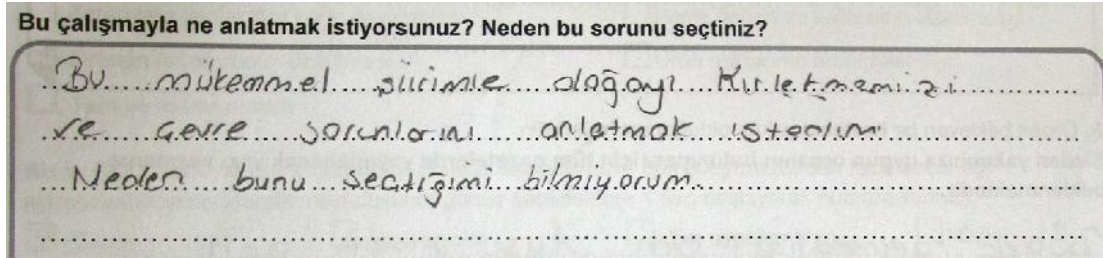 Bu çalışmayla ne anlatmak istiyorsunuz? Neden bu sorunu seçtiniz?
Bu mükemmel şiirimle doğayı kirletmemizi
ve çevre sorunlarını anlatmak istedim.
Neden bunu seçtiğimi bilmiyorum.